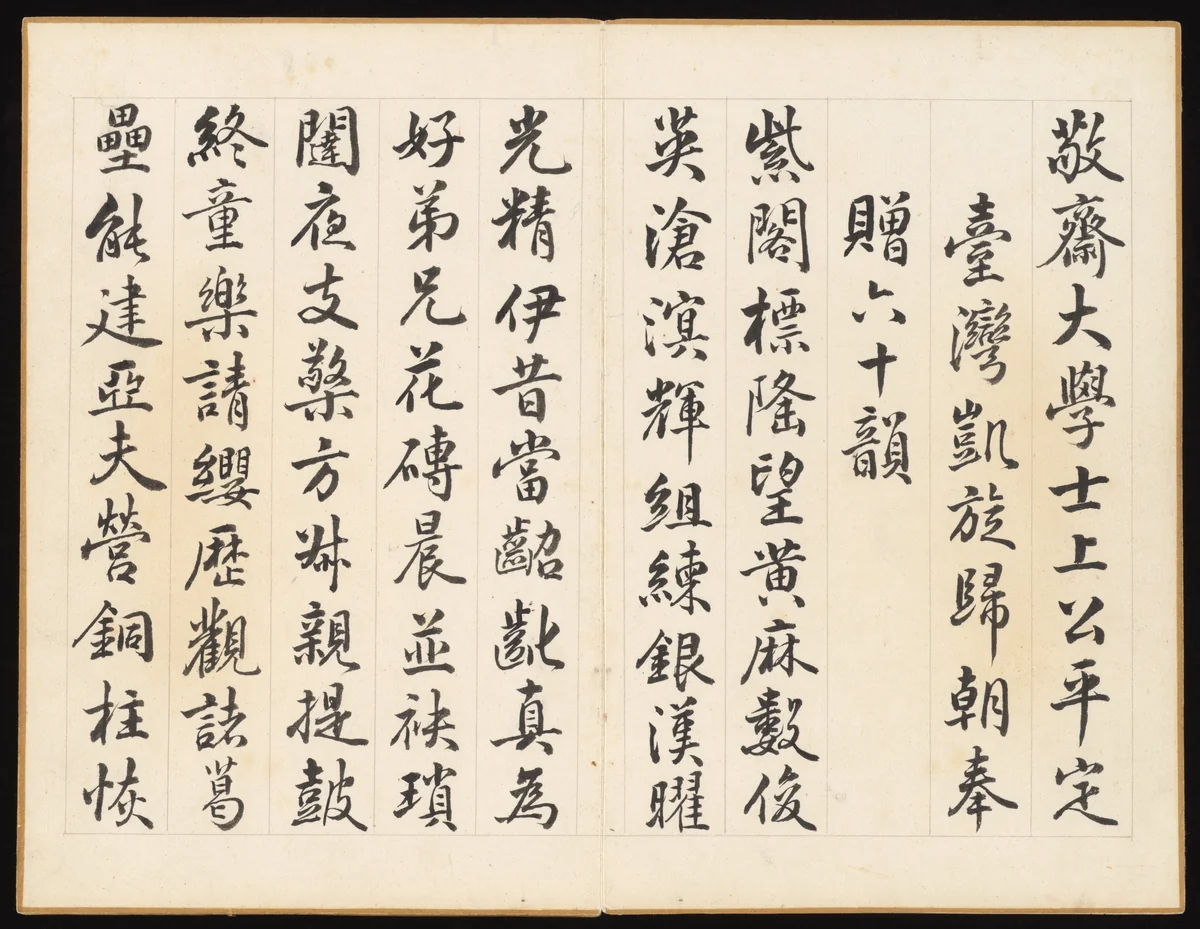 敬齋大學士上公平定
臺灣凱旋歸朝奉
贈六十韻
紫閣標隆望黃麻數俊
英滄溟輝組練銀漢曜
光精伊昔當齠齔真為
好弟兄花磚晨並袂瑣
闥夜支檠方叔親提鼓
終童樂請纓歷觀諸葛
壘能建亞夫營銅柱恢